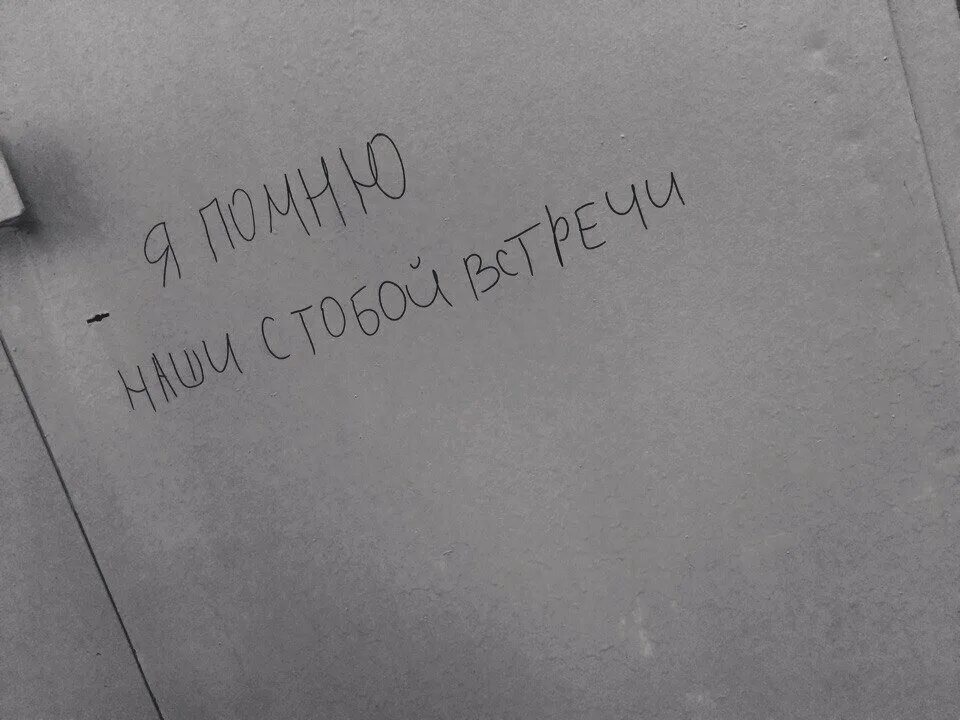 Я ПОМНЮ
НАШИ С ТОБОЙ ВСТРЕЧИ